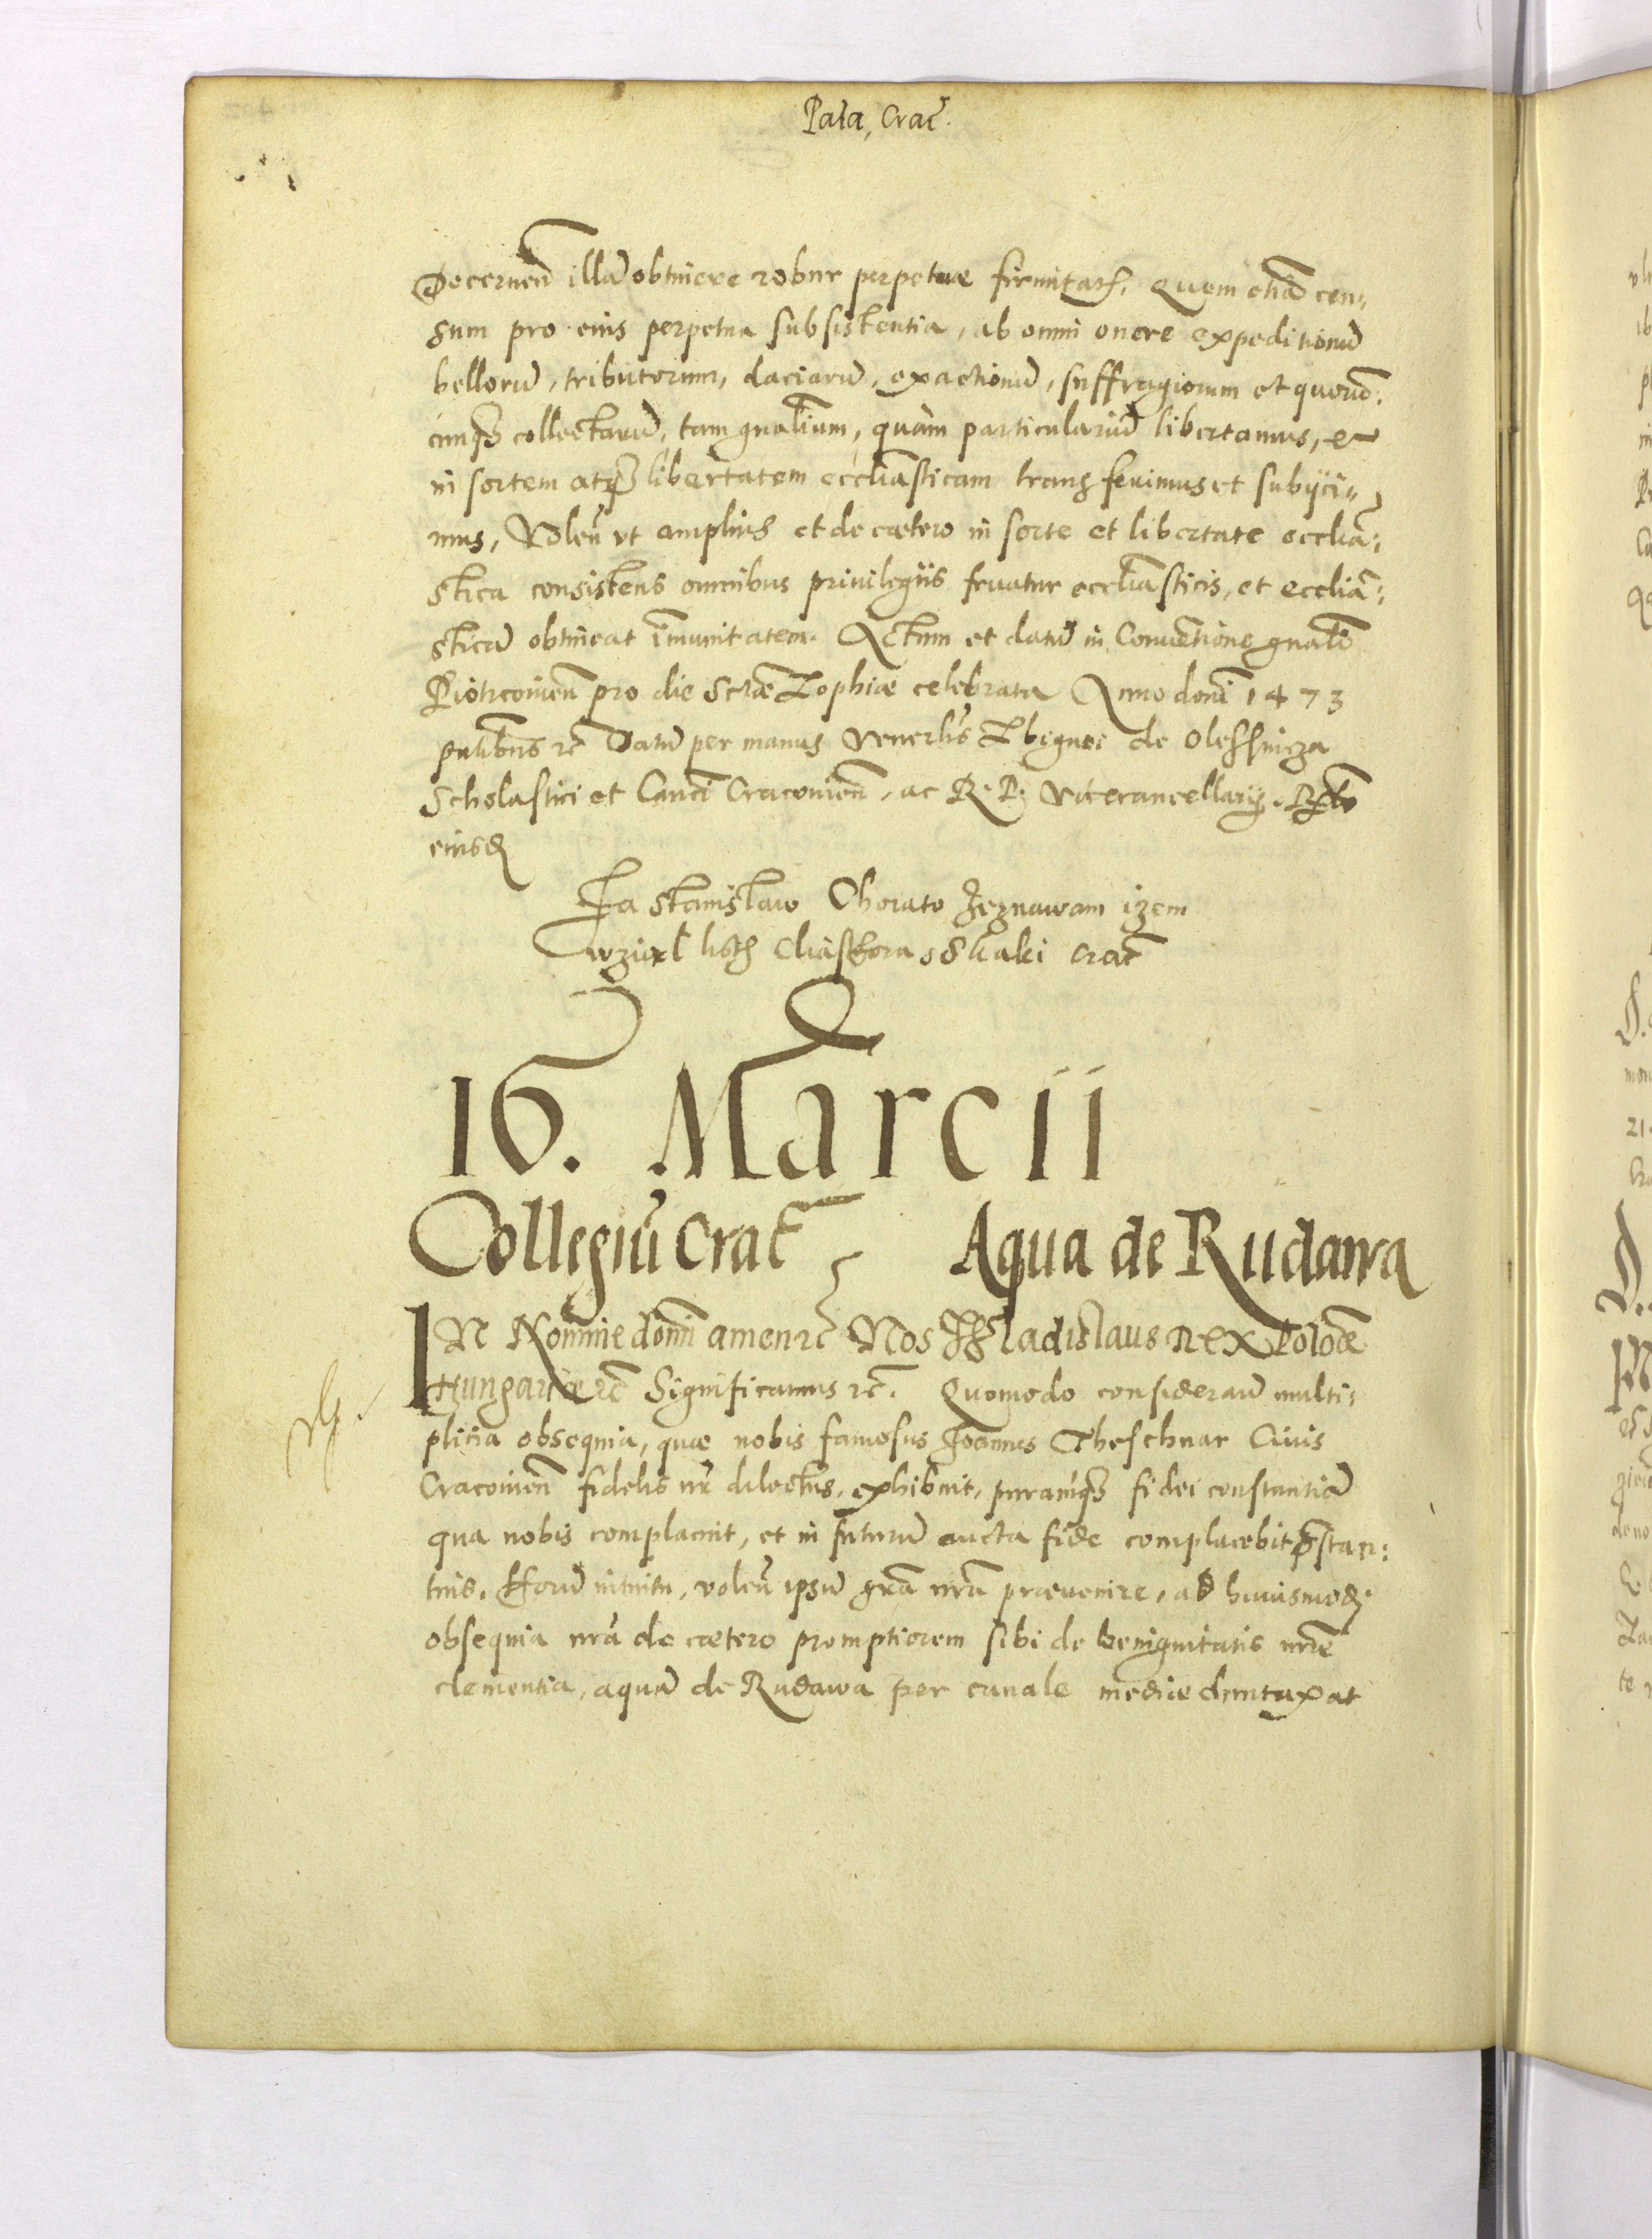 Pala, Crac̃.
Decernen̄ illā obtinere robur perpetuæ firmitatis, Quem etiā cen„
sum pro eius perpetua subsistentia, ab omni onere expeditionū
bellorū, tributorum, daciarū, exactionū, suffragiorum et quorū:
cunq3 collectarū, tam gnãlium, quàm particularium libertamus, et
in sortem atq3 libertatem eccliãsticam transferimus et subijci„
mus, Volen̄ vt amplius et de cætero in sorte et libertate ecclia͂:
stica consistens omnibus priuilegiis fruatur eccliãsticis, et eccliã:
sticā obtineat im̄unitatem. Actum et datū in Conuentione gnãli
Piotrcouien̄ pro die Sctæ Zophiæ celebrata Anno domĩ 1473
pntĩbus rc̄ Datū per manus Venerlis Zbignei de Olessnicza
Scholastici et Canci Cracouien̄, ac R. P. Vicecancellarij.
eiusd
Ja Stanislaw Chorąto zeznawam izem
wziąl listh Cliasthora Skalki Crac̄
16. Marcii
Collegiū Crac̄ Aqua de Rudawa
IN Nomine domĩ amen rc̄ Nos Wladislaus Rex Poloæ
Hungariæ rc̄ Significamus rc̄. Quomodo considerań multi:
plicia obsequia, quæ nobis famosus Joannes Theschnar Ciuis
Cracouien̄ fidelis nr̃ dilectus, exhibuit, puramq3 fidei constantiā
qua nobis complacuit, et in futurū aucta fide complacebit p̃stan:
tius. Horū intuitu, volen̄ ipsū grã nrã præuenire, ad huiusmodi
obsequia nrã de cætero promptiorem sibi de benignitatis nrẽ
clementia, aquā de Rudawa per canale medie duntaxat